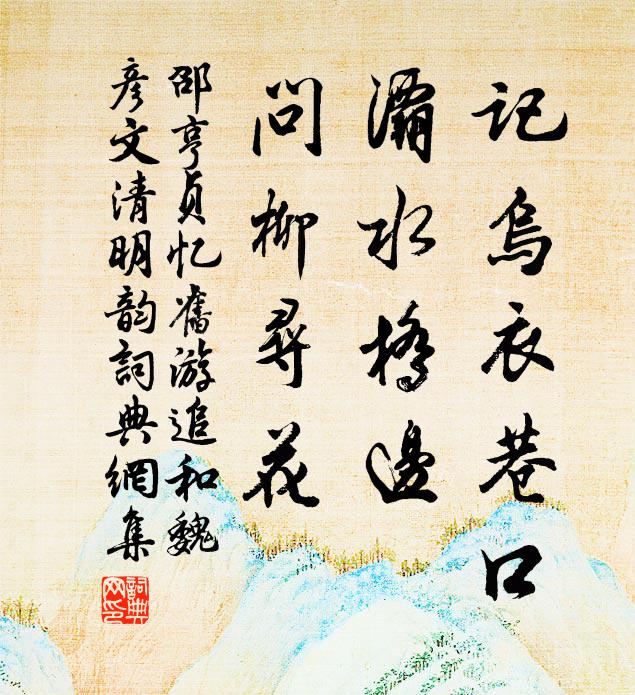 记乌衣巷口
灞水桥边
问柳寻花
邵亨贞忆旧游追和魏
彦文清明韵词典网集
词典网印